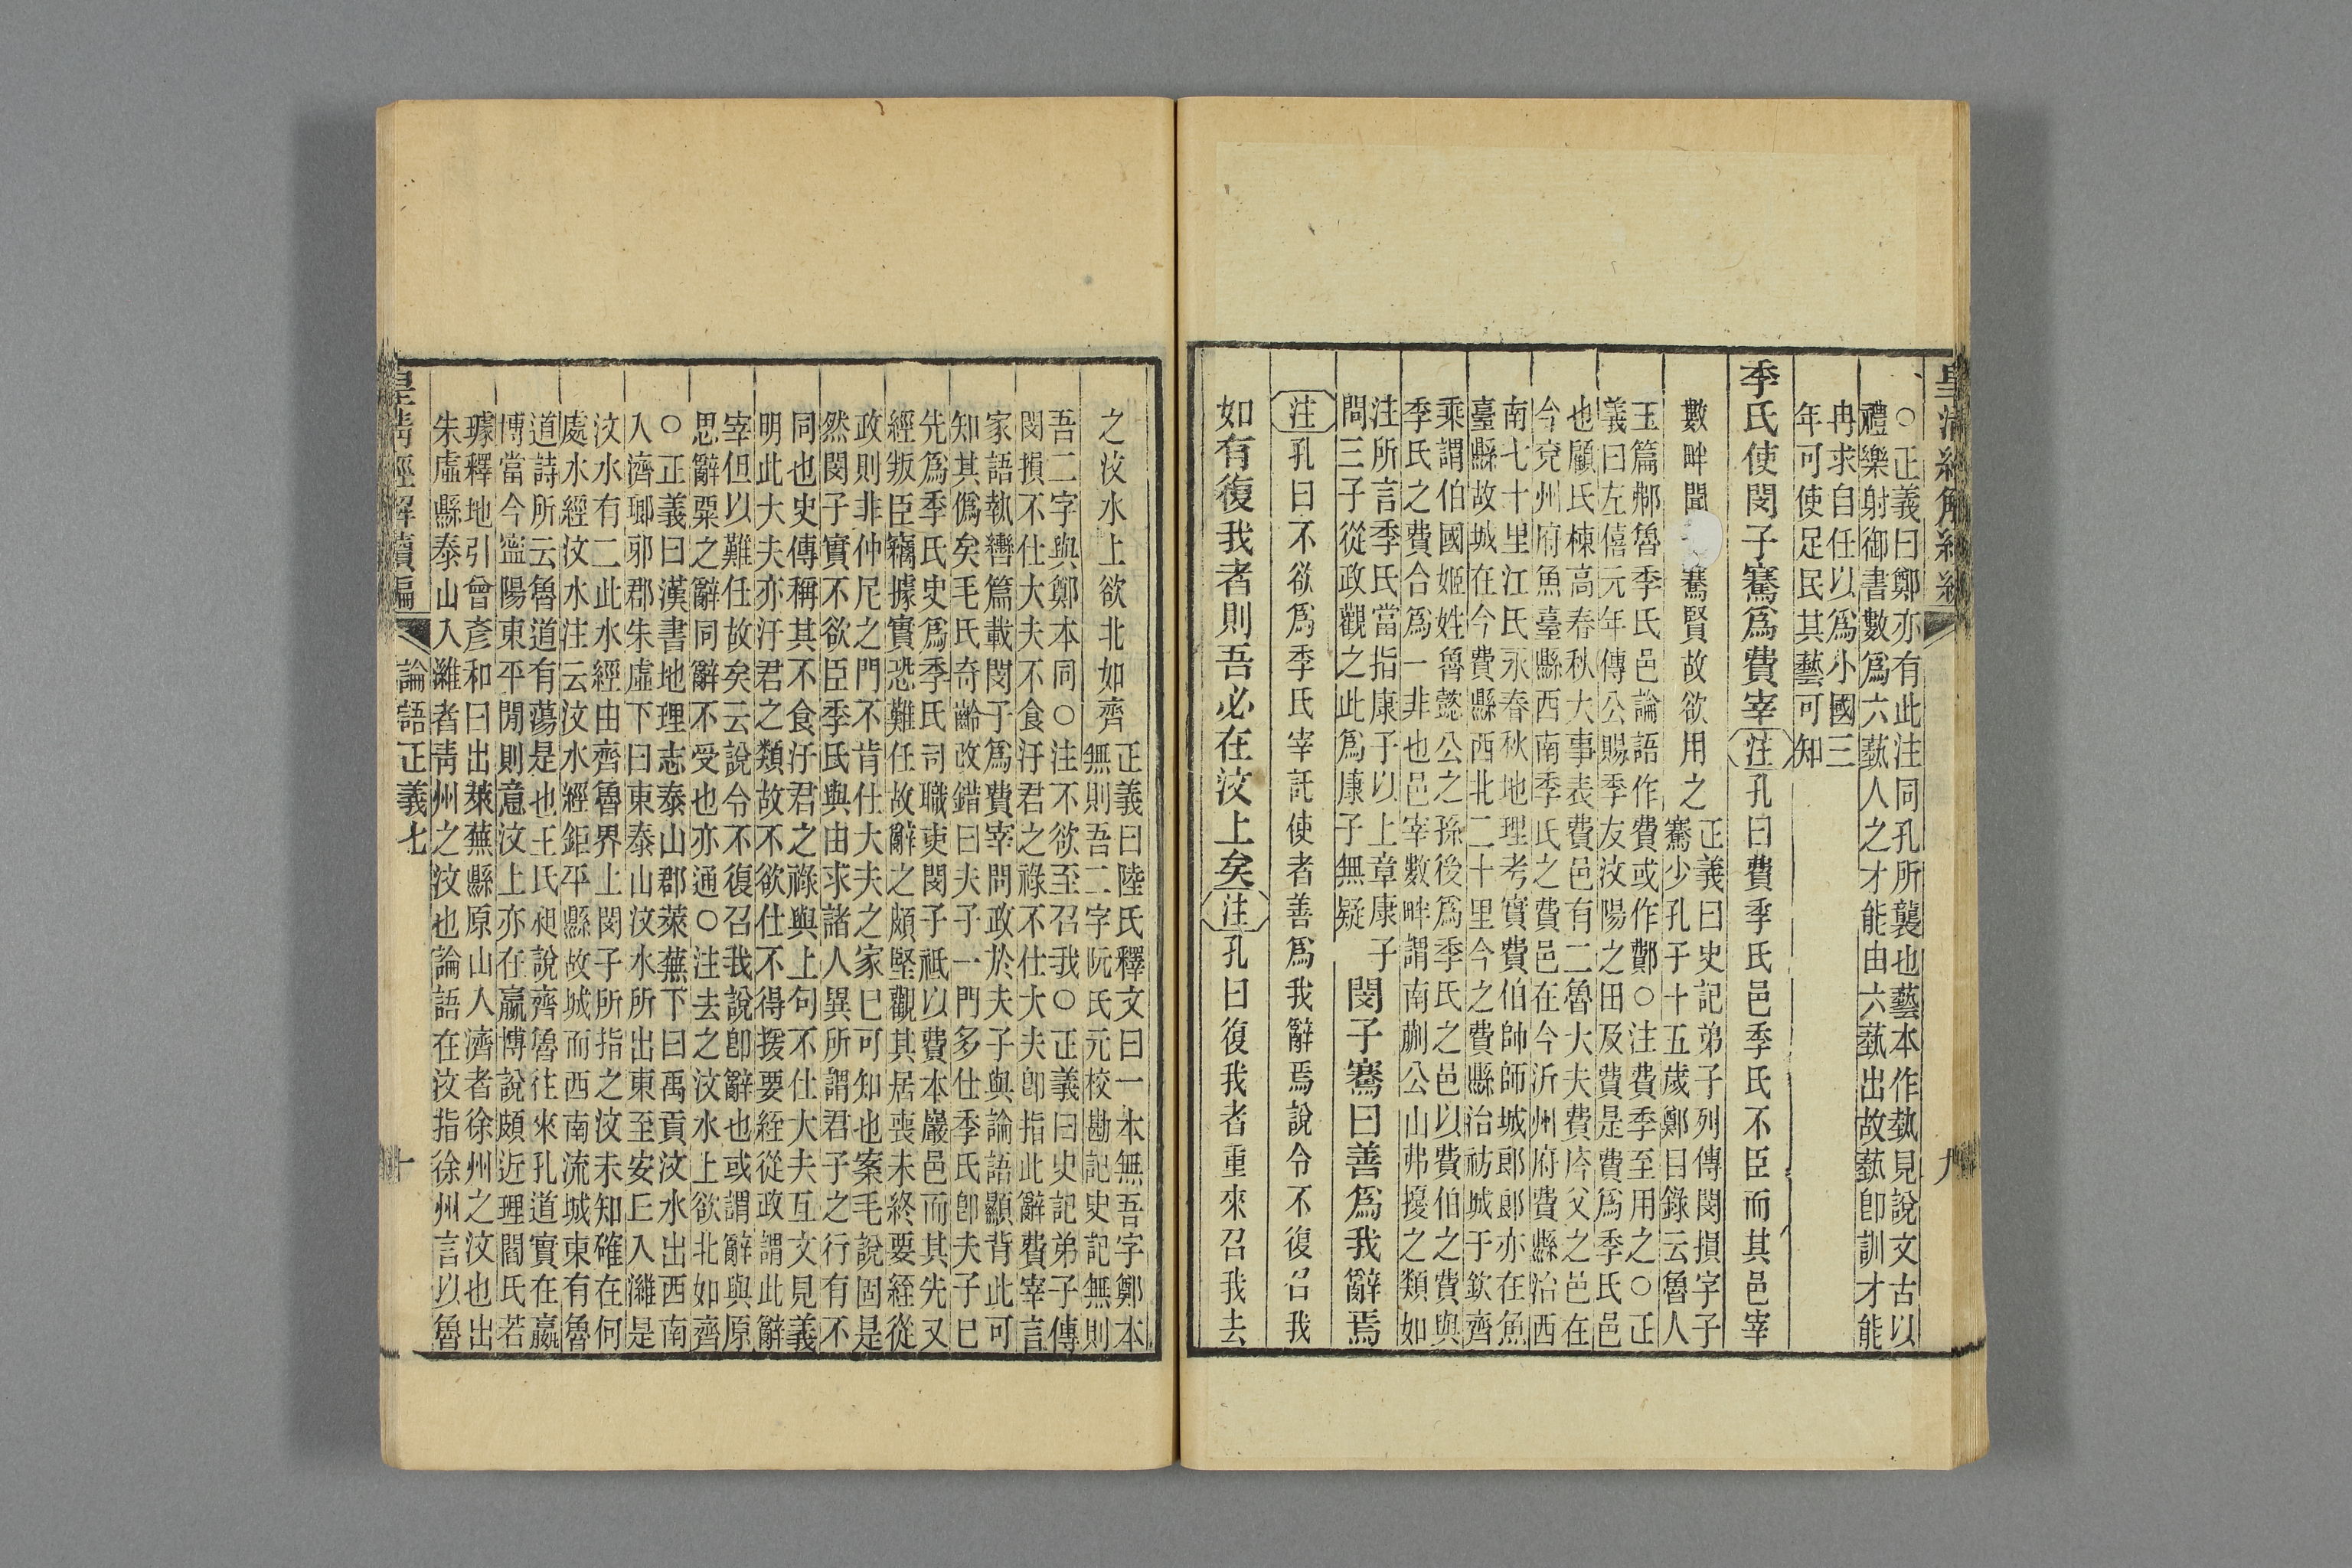 皇清經解續編
九
○正義曰鄭亦有此注同孔所襲也藝本作埶見說文古以
禮樂射御書數爲六藝人之才能由六藝出故藝卽訓才能
冉求自任以爲小國三
年可使足民其藝可知
季氏使閔子騫爲費宰注孔曰費季氏邑季氏不臣而其邑宰
數畔聞騫賢故欲用之
正義曰史記弟子列傳閔損字子
騫少孔子十五歲鄭目錄云魯人
玉篇鄪魯季氏邑論語作費或作鄪○注費季至用之○正
義曰左僖元年傳公賜季友汶陽之田及費是費爲季氏邑
也顧氏棟高春秋大事表費邑有二魯大夫費庈父之邑在
今兗州府魚臺縣西南季氏之費邑在今沂州府費縣治西
南七十里江氏永春秋地理考實費伯帥師城郎郎亦在魚
臺縣故城在今費縣西北二十里今之費縣治祊城于欽齊
乘謂伯國姬姓魯懿公之孫後爲季氏之邑以費伯之費與
季氏之費合爲一非也邑宰數畔謂南蒯公山弗擾之類如
注所言季氏當指康子以上章康子
問三子從政觀之此爲康子無疑
閔子騫曰善爲我辭焉
注孔曰不欲爲季氏宰託使者善爲我辭焉說令不復召我
如有復我者則吾必在汶上矣注孔曰復我者重來召我去
之汶水上欲北如齊
正義曰陸氏釋文曰一本無吾字鄭本
無則吾二字阮氏元校勘記史記無則
吾二字與鄭本同○注不欲至召我○正義曰史記弟子傳
閔損不仕大夫不食汙君之祿不仕大夫卽指此辭費宰言
家語執轡篇載閔子爲費宰問政於夫子與論語顯背此可
知其僞矣毛氏奇齡改錯曰夫子一門多仕季氏卽夫子已
先爲季氏史爲季氏司職吏閔子祗以費本巖邑而其先又
經叛臣竊據實恐難任故辭之頗堅觀其居喪未終要絰從
政則非仲尼之門不肯仕大夫之家已可知也案毛說固是
然閔子實不欲臣季氏與由求諸人異所謂君子之行有不
同也史傳稱其不食汙君之祿與上句不仕大夫互文見義
明此大夫亦汙君之類故不欲仕不得援要絰從政謂此辭
宰但以難任故矣云說令不復召我說卽辭也或謂辭與原
思辭粟之辭同辭不受也亦通○注去之汶水上欲北如齊
○正義曰漢書地理志泰山郡萊蕪下曰禹貢汶水出西南
入濟瑯邪郡朱虛下曰東泰山汶水所出東至安丘入濰是
汶水有二此水經由齊魯界上閔子所指之汶未知確在何
處水經汶水注云汶水經鉅平縣故城而西南流城東有魯
道詩所云魯道有蕩是也王氏昶說齊魯往來孔道實在嬴
博當今寍陽東平閒則意汶上亦在嬴博說頗近理閻氏若
璩釋地引曾彥和曰出萊蕪縣原山入濟者徐州之汶也出
朱虛縣泰山入濰者靑州之汶也論語在汶指徐州言以魯
皇清經解續編
論語正義七
十